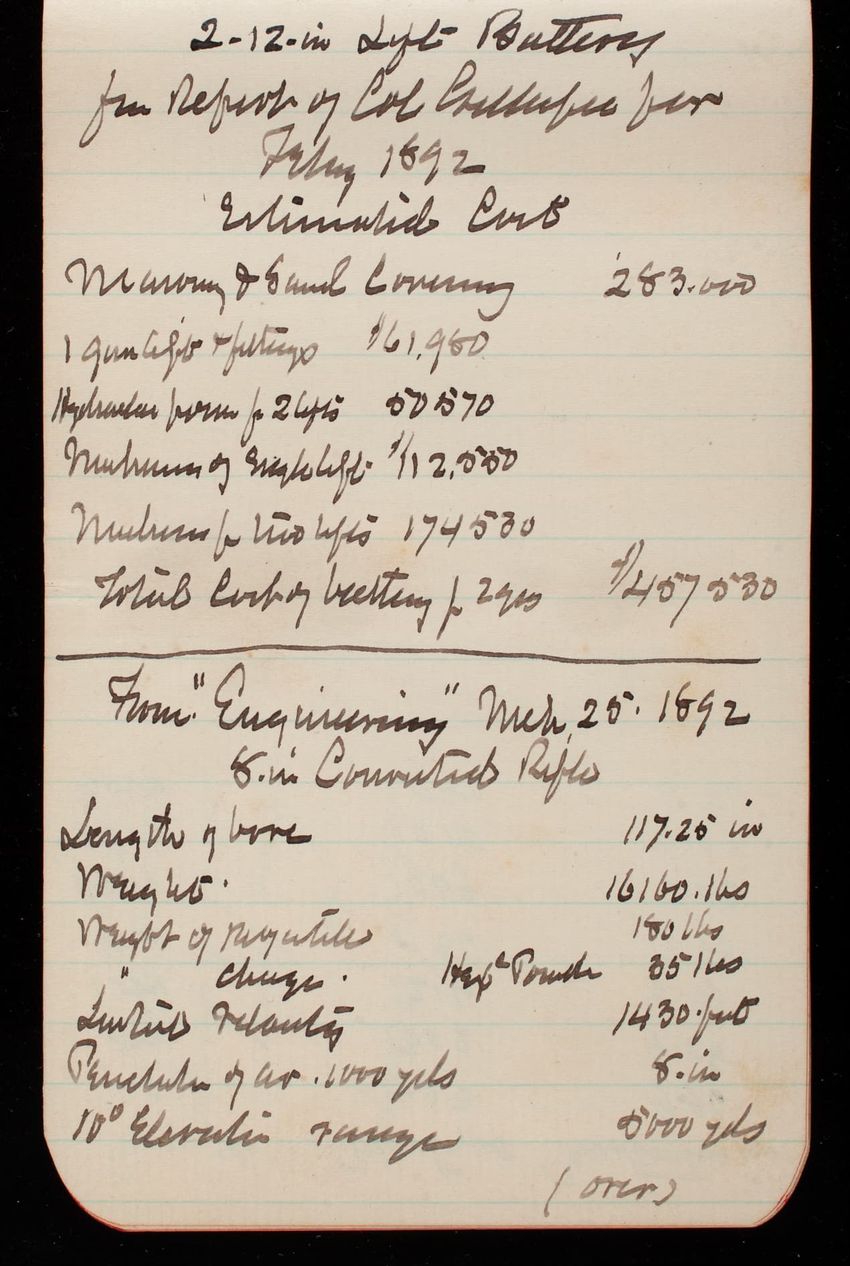 2-12-in Lift Battery
fm Report of Col Craighill for
Feby 1892
Estimated Cost
Masonry & Sand Covering 283.000
1 gun lift & fittings $61,980
Hydraulic power for 2 lifts 50570
Machinery of Single lift $112,550
Machinery for two lifts 174530
Total Cost of battery for 2 guns $457530
From "Engineering" Mch, 25. 1892
8.in Converted Rifle
Length of bore 117.25 in
Weight. 16160.lbs
Weight of Projectile 180 lbs
" charge. Hexl Powder 35 lbs
Initial Velocity 1430.feet
Penetration of at .1000 yds 8.in
10° Elevation range 5000 yds
(over)